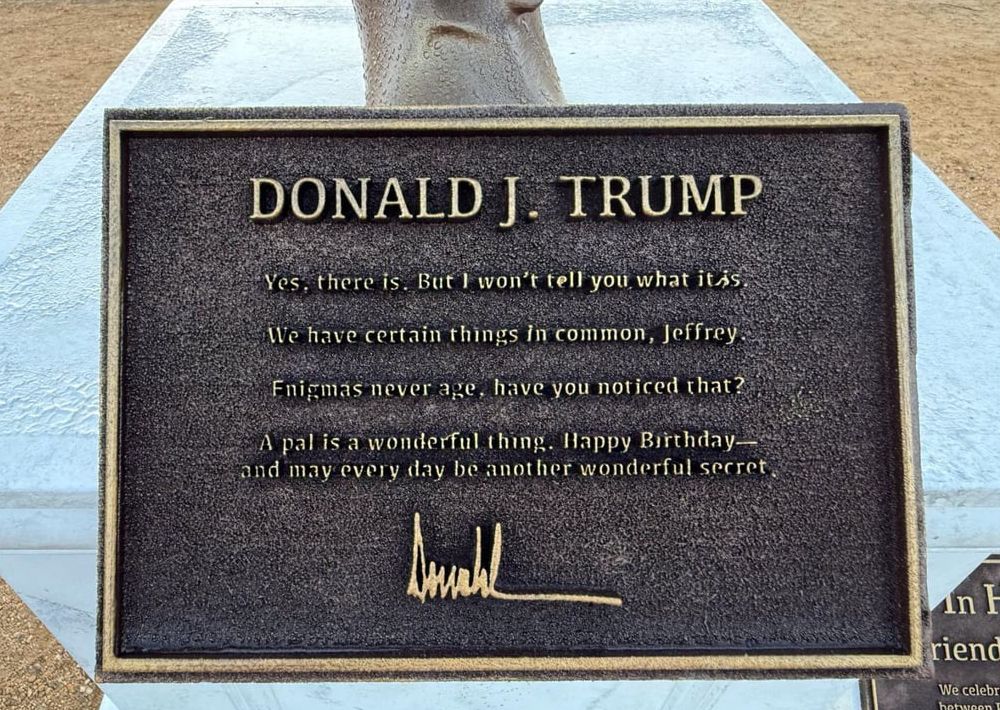 DONALD J. TRUMP
Yes, there is. But I won't tell you what it is.
We have certain things in common, Jeffrey.
Enigmas never age, have you noticed that?
A pal is a wonderful thing. Happy Birthday—
and may every day be another wonderful secret.
Donald
In H
riend
We celebr
between